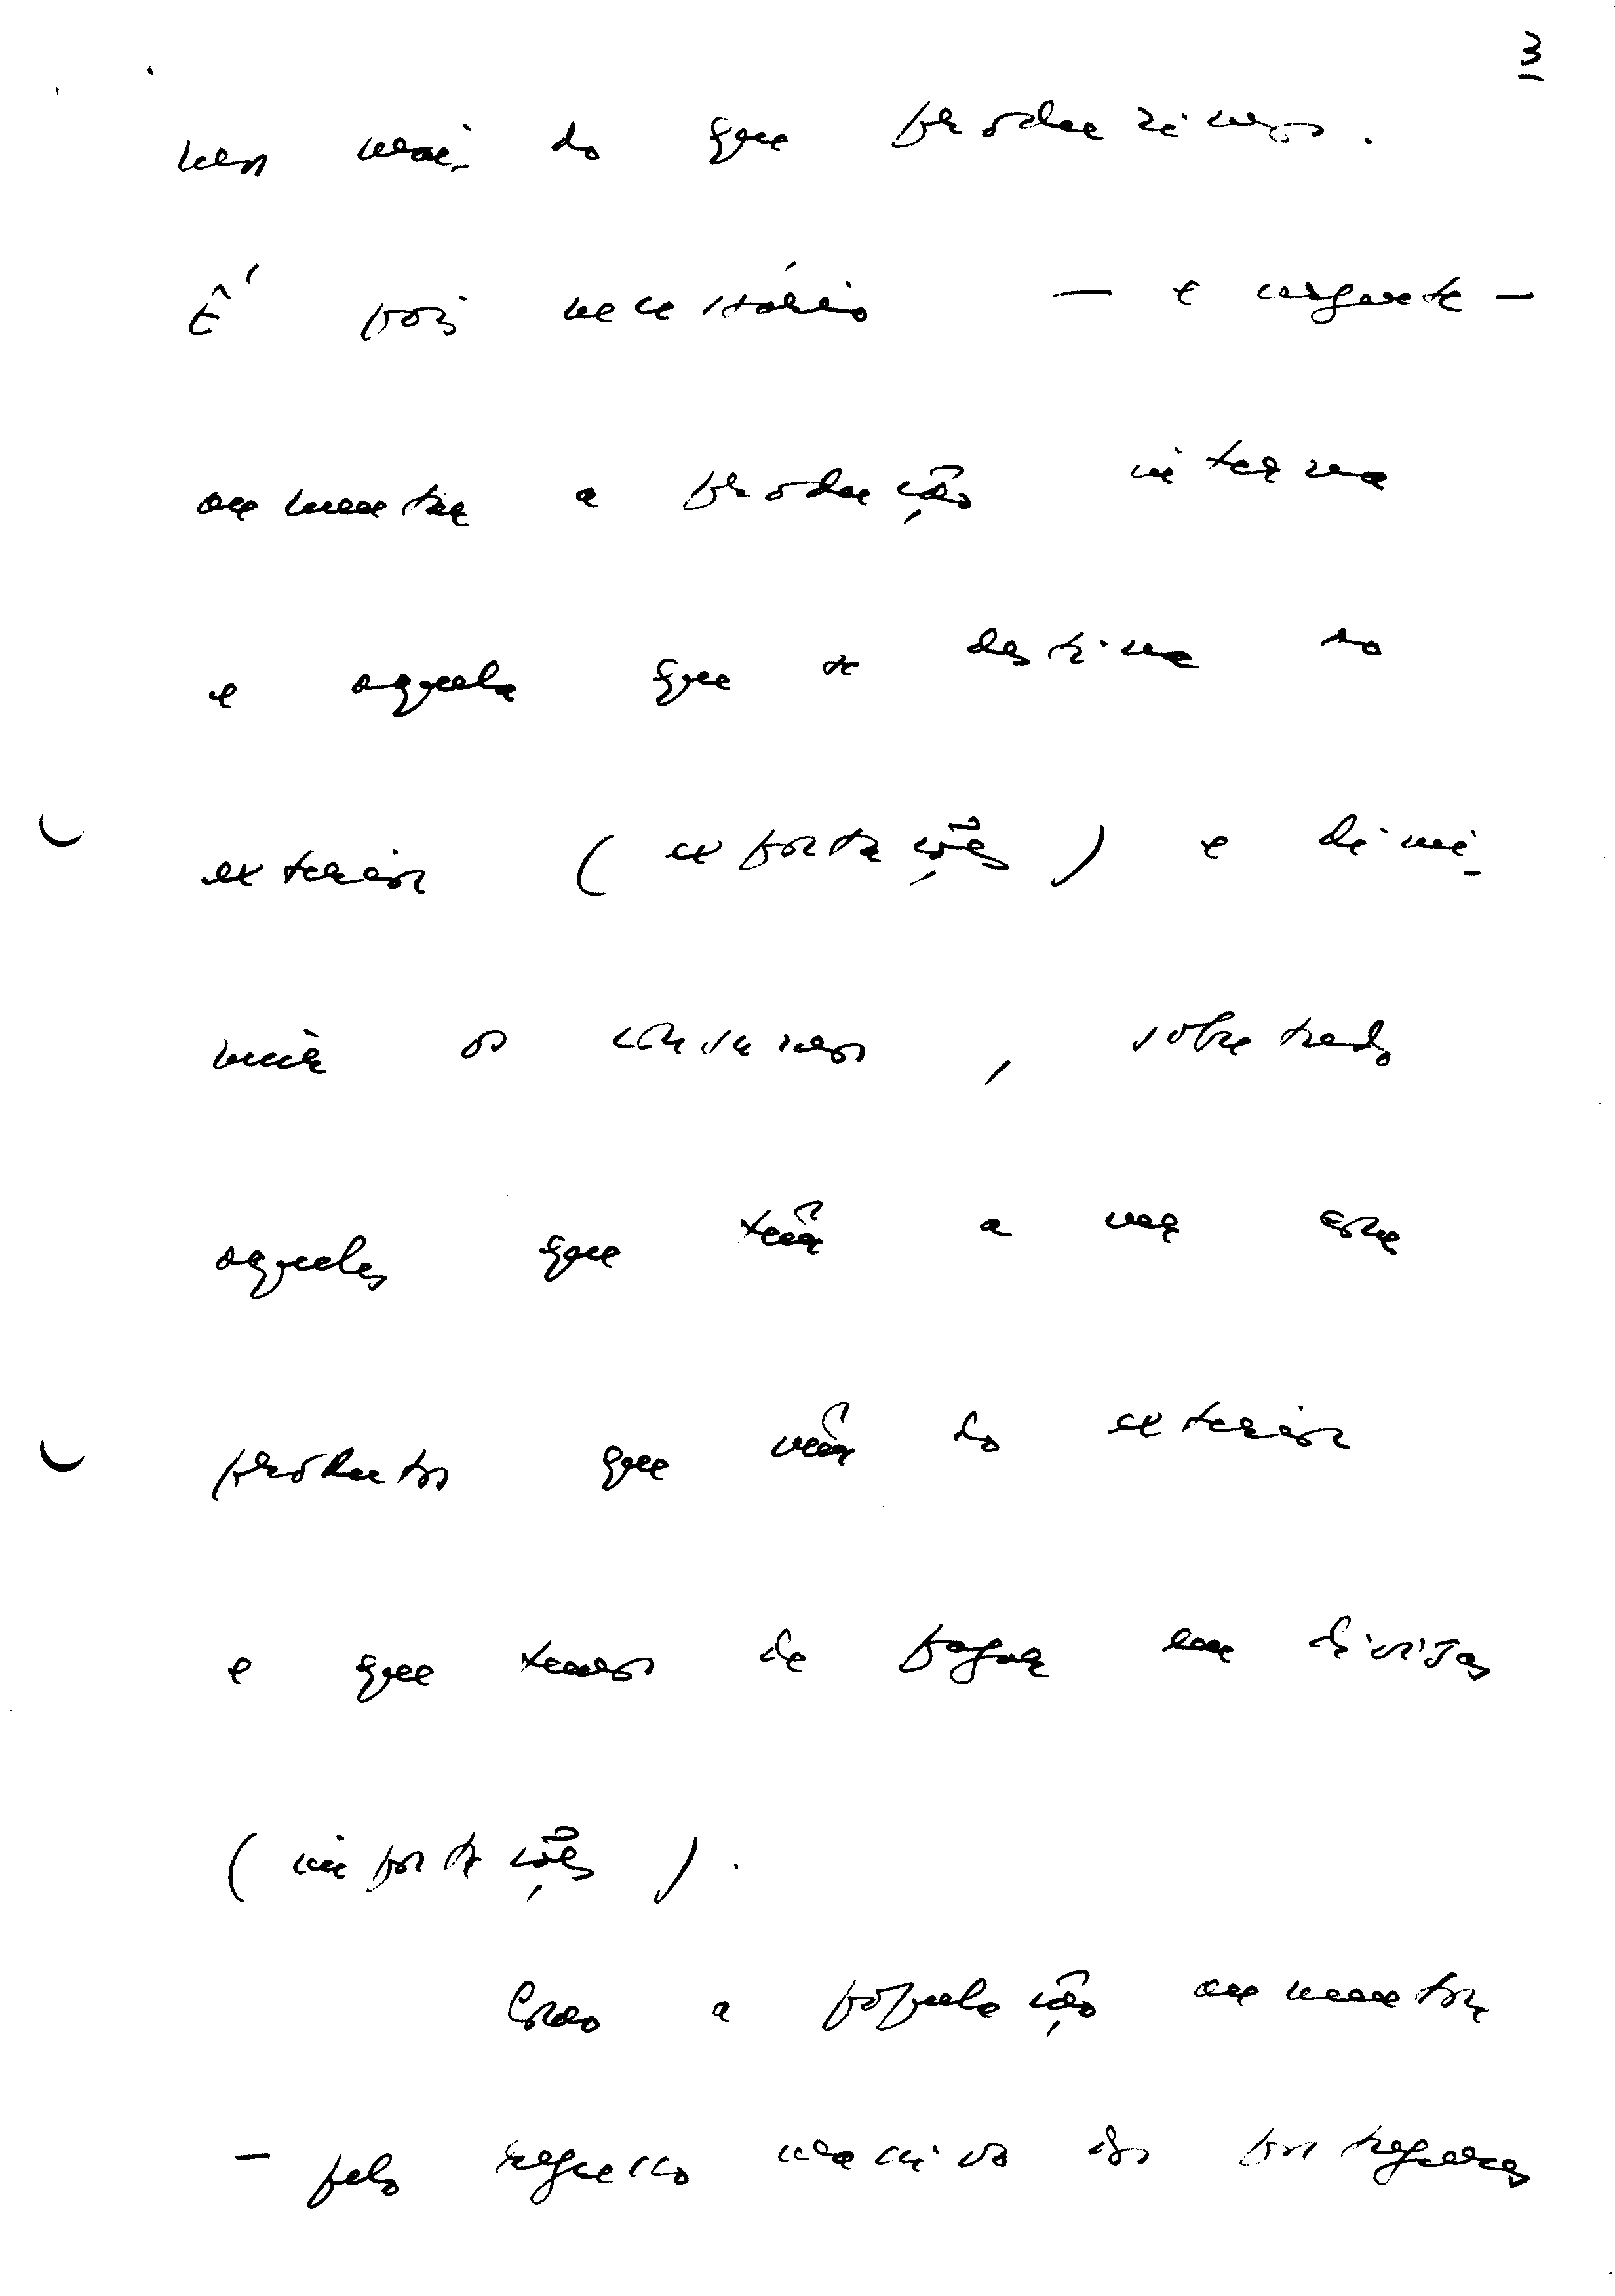 3
mos mais do que produzimos.
É pois necessário — e urgente —
aumentar a produção interna
e aquela que se destina ao
exterior (exportações) e dimi-
nuir os consumos, sobretudo
aqueles que têm a ver com
produtos que vêm do exterior
e que temos de pagar em divisas
(importações).
Como a população aumentou
— pelo regresso massivo dos portugueses